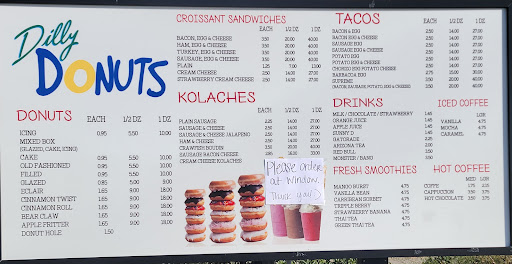 Dilly
DONUTS
DONUTS EACH 1/2 DZ 1 DZ
ICING 0.95 5.50 10.00
MIXED BOX
(GLAZED, CAKE, ICING)
CAKE 0.95 5.50 10.00
OLD FASHIONED 0.95 5.50 10.00
FILLED 0.95 5.50 10.00
GLAZED 0.85 5.00 9.00
ECLAIR 1.60 9.00 18.00
CINNAMON TWIST 1.60 9.00 18.00
CINNAMON ROLL 1.60 9.00 18.00
BEAR CLAW 1.60 9.00 18.00
APPLE FRITTER 1.60 9.00 18.00
DONUT HOLE 1.50
CROISSANT SANDWICHES
EACH 1/2 DZ 1 DZ
BACON, EGG & CHEESE 3.50 20.00 40.00
HAM, EGG & CHEESE 3.50 20.00 40.00
TURKEY, EGG & CHEESE 3.50 20.00 40.00
SAUSAGE, EGG & CHEESE 3.50 20.00 40.00
PLAIN
CREAM CHEESE 2.50 14.00 27.00
STRAWBERRY CREAM CHEESE 2.50 14.00 27.00
KOLACHES EACH 1/2 DZ 1 DZ
PLAIN SAUSAGE
SAUSAGE & CHEESE
SAUSAGE & CHEESE JALAPENO
HAM & CHEESE
CRAWFISH BOUDIN
SAUSAGE BACON CHEESE
CREAM CHEESE KOLACHES
Please order
at window.
Thank you!
TACOS EACH 1/2 DZ 1 DZ
BACON & EGG 2.50 14.00 27.00
BACON EGG & CHEESE 2.50 14.00 27.00
SAUSAGE EGG 2.50 14.00 27.00
SAUSAGE EGG & CHEESE 2.50 14.00 27.00
POTATO EGG 2.50 14.00 27.00
POTATO EGG & CHEESE 2.50 14.00 27.00
CHORIZO EGG POTATO CHEESE 2.50 14.00 27.00
BARBACOA EGG 2.75 15.00 30.00
SUPREME 3.50 20.00 40.00
(BACON, SAUSAGE, POTATO, EGG & CHEESE)
DRINKS
MILK / CHOCOLATE / STRAWBERRY
ORANGE JUICE
APPLE JUICE
SUNNY D
GATORADE
ARIZONA TEA
RED BULL
MONSTER / BANG
ICED COFFEE
VANILLA 4.75
MOCHA 4.75
CARAMEL 4.75
FRESH SMOOTHIES
MANGO BURST 4.75
VANILLA BEAN 4.75
CARIBBEAN SORBET 4.75
TRIPPLE BERRY 4.75
STRAWBERRY BANANA 4.75
THAI TEA 4.75
GREEN THAI TEA 4.75
HOT COFFEE
COFFE
CAPPUCCION 3.50 3.75
HOT CHOCOLATE 3.50 3.75